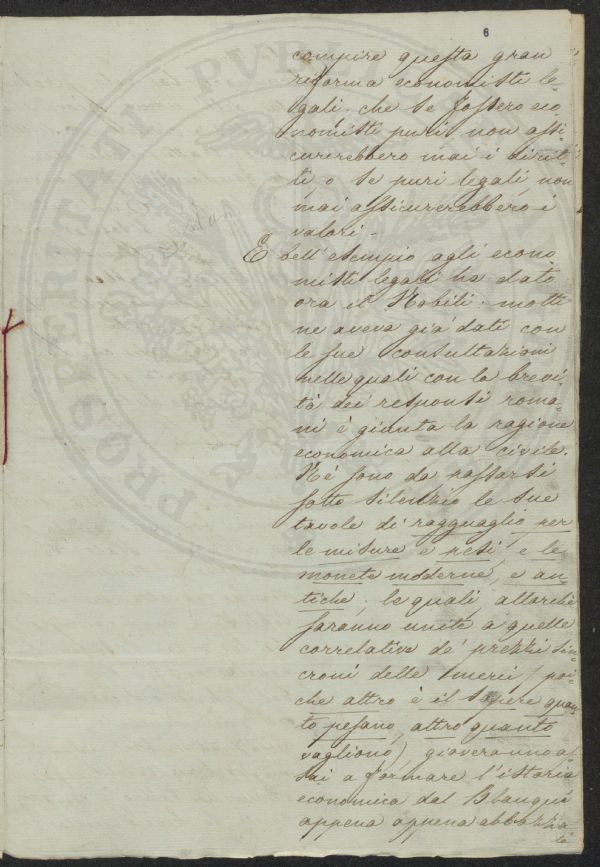 6
compire questa gran
riforma economisti le-
gali; che se fossero eco
nomisti puri non assi-
curerebbero mai i dirit-
ti, o se puri legali, non
mai assicurerebbero i
valori.
E bell'esempio agli econo
misti legali ha dato
ora il Nobili: molti
ne aveva già dati con
le sue consultazioni
nelle quali con la brevi-
tà dei responsi roma-
ni è giunta la ragione
economica alla civile.
Nè sono da passarsi
sotto silenzio le sue
tavole di ragguaglio per
le misure e pesi, e le
monete moderne, e an-
tiche; le quali allorchè
saranno unite a quelle
correlative de' prezzi sin-
croni delle merci (poi-
che altro è il sapere quan
to pesano, altro quanto
vagliono) gioveranno as-
sai a formare l'istoria
economica dal Blanqui
appena appena abbozza-
ta
PROSPERITATI PVB